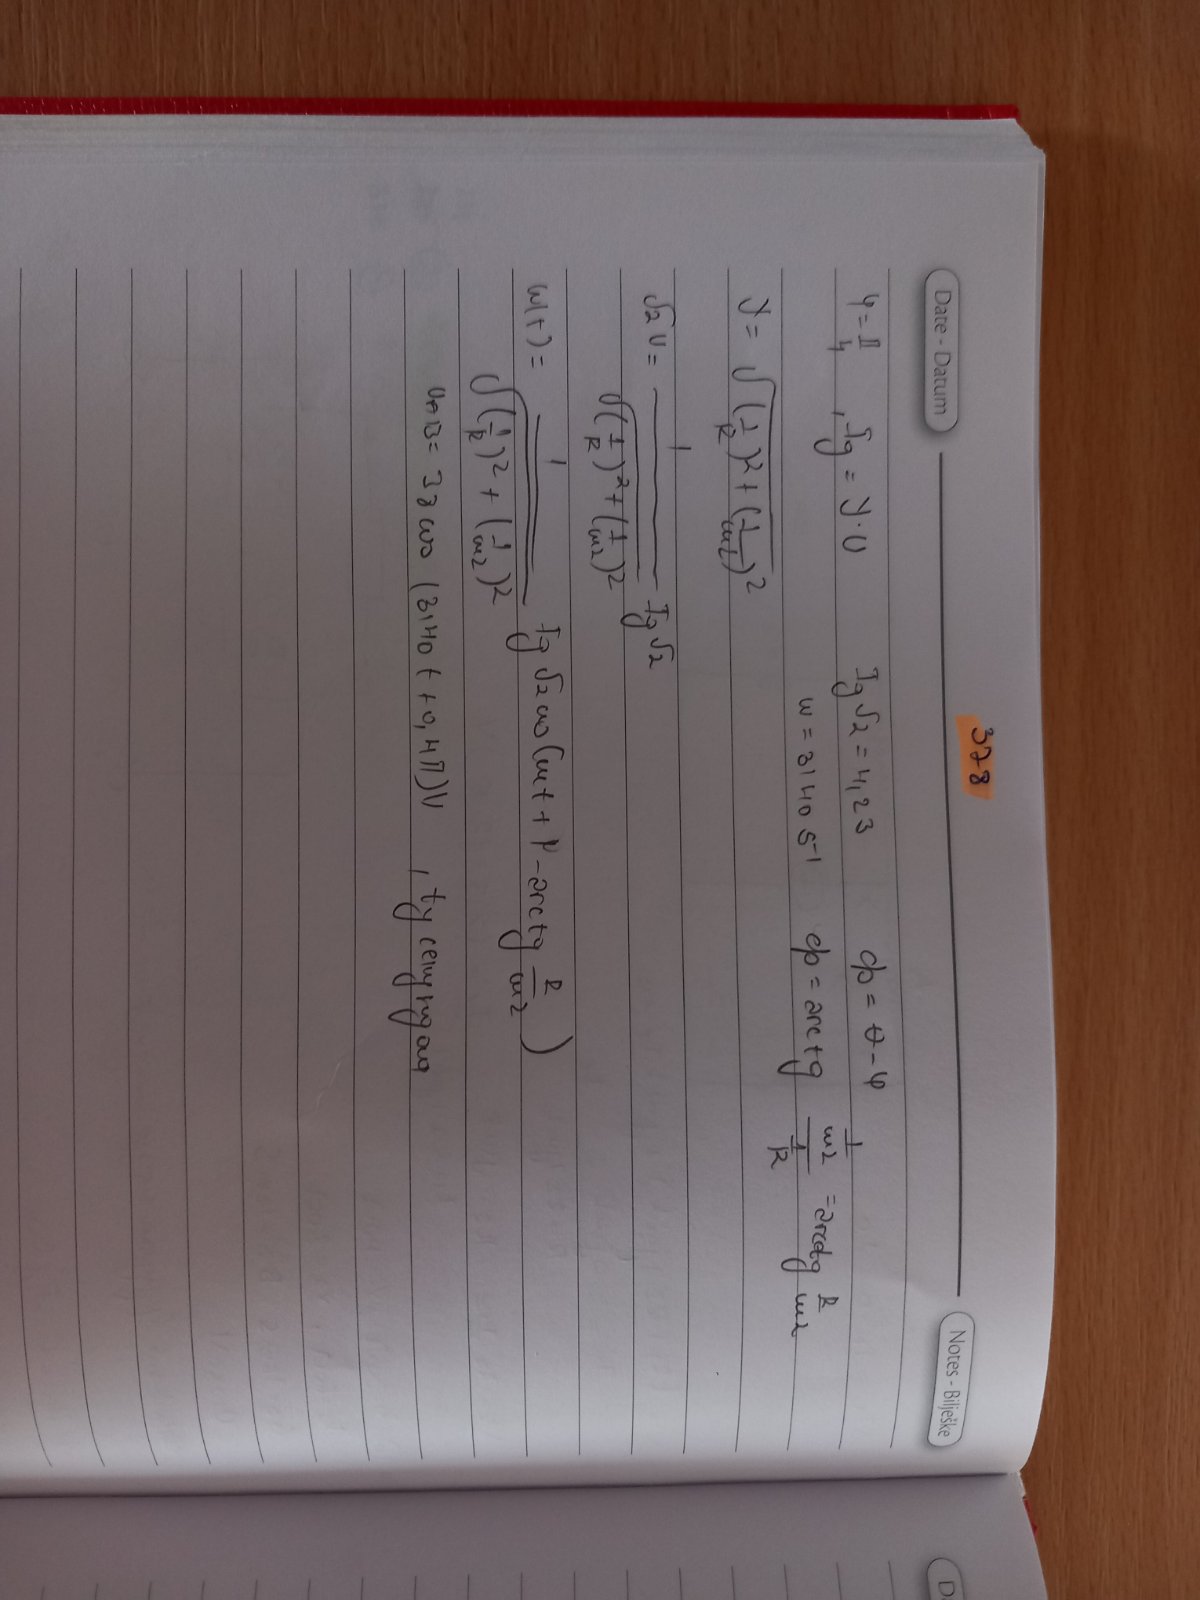 Date - Datum
Notes - Bilješke
378
ψ = π/4 , Ig = Y·U Ig√2 = 4,23 φ = θ - ψ
ω = 3140 s⁻¹ φ = arctg (1/ωL)/(1/R) = arctg R/ωL
Y = √((1/R)² + (1/ωL)²)
√2 U = 1/√((1/R)² + (1/ωL)²) Ig√2
u(t) = 1/√((1/R)² + (1/ωL)²) Ig √2 cos(ωt + ψ - arctg R/ωL)
UAB = 38 cos (3140 t + 0,4π) V